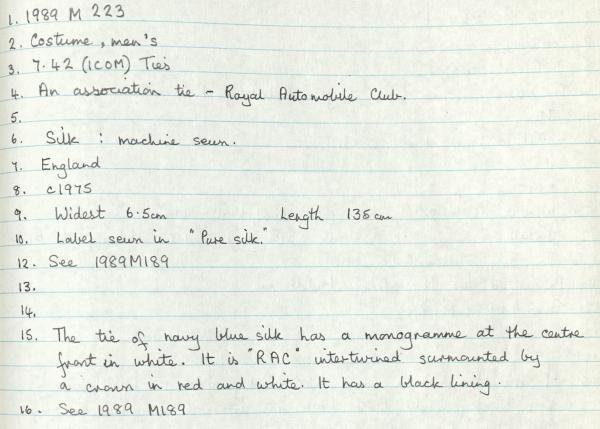 1. 1989 M 223
2. Costume, men's
3. 7.42 (ICOM) Ties
4. An association tie - Royal Automobile Club.
5.
6. Silk : machine sewn.
7. England
8. c1975
9. Widest 6.5cm Length 135cm
10. Label sewn in "Pure silk."
12. See 1989M189
13.
14.
15. The tie of navy blue silk has a monogramme at the centre
front in white. It is "RAC" intertwined surmounted by
a crown in red and white. It has a black lining.
16. See 1989 M189